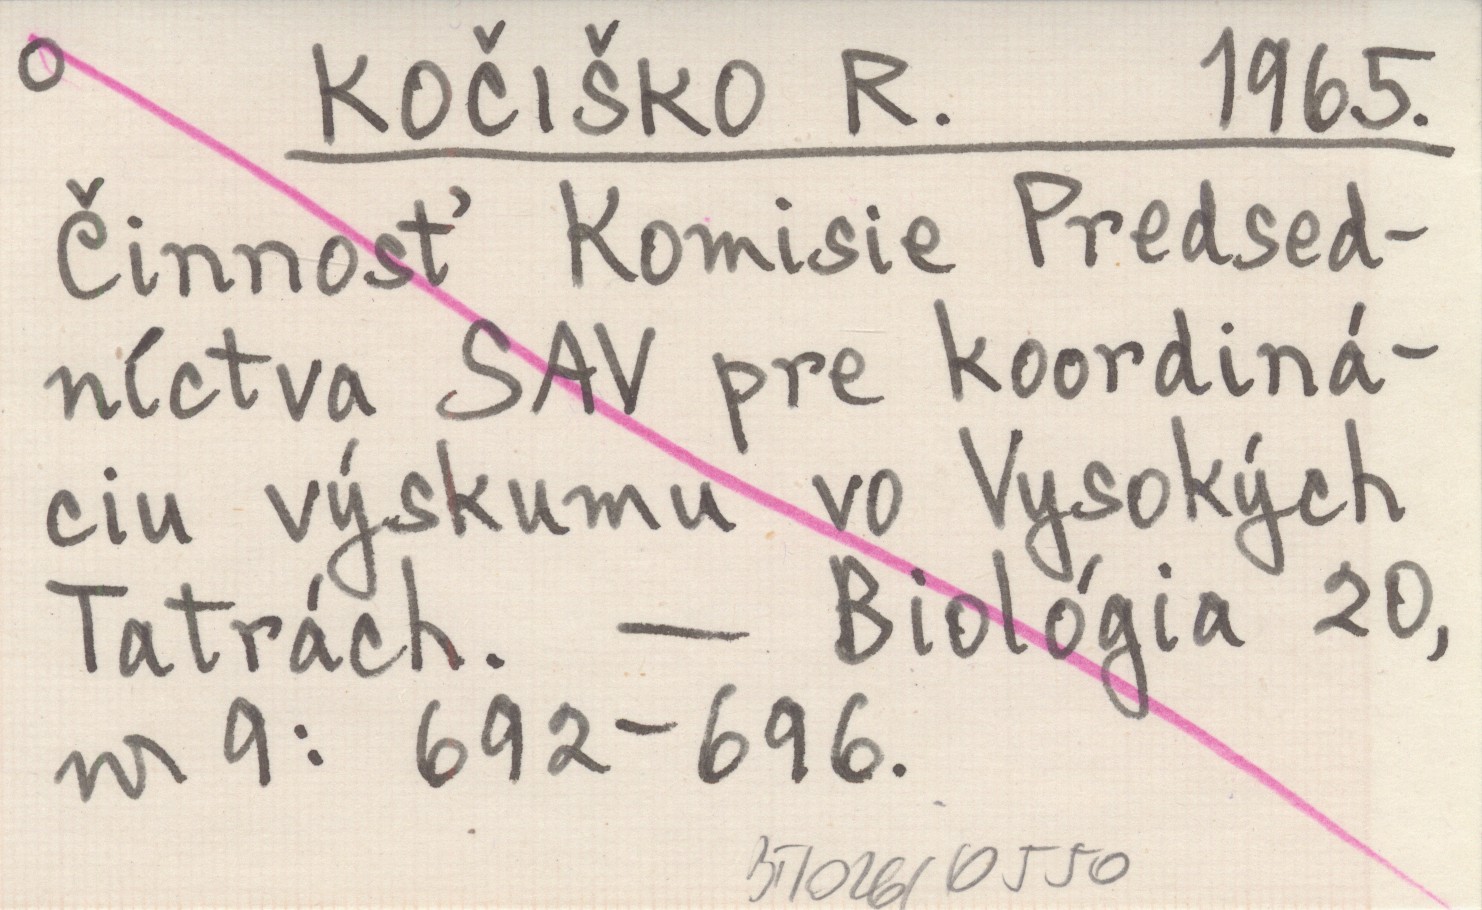 o KOČIŠKO R. 1965.
Činnosť Komisie Predsed-
níctva SAV pre koordiná-
ciu výskumu vo Vysokých
Tatrách. — Biológia 20,
nr 9: 692-696.
0550